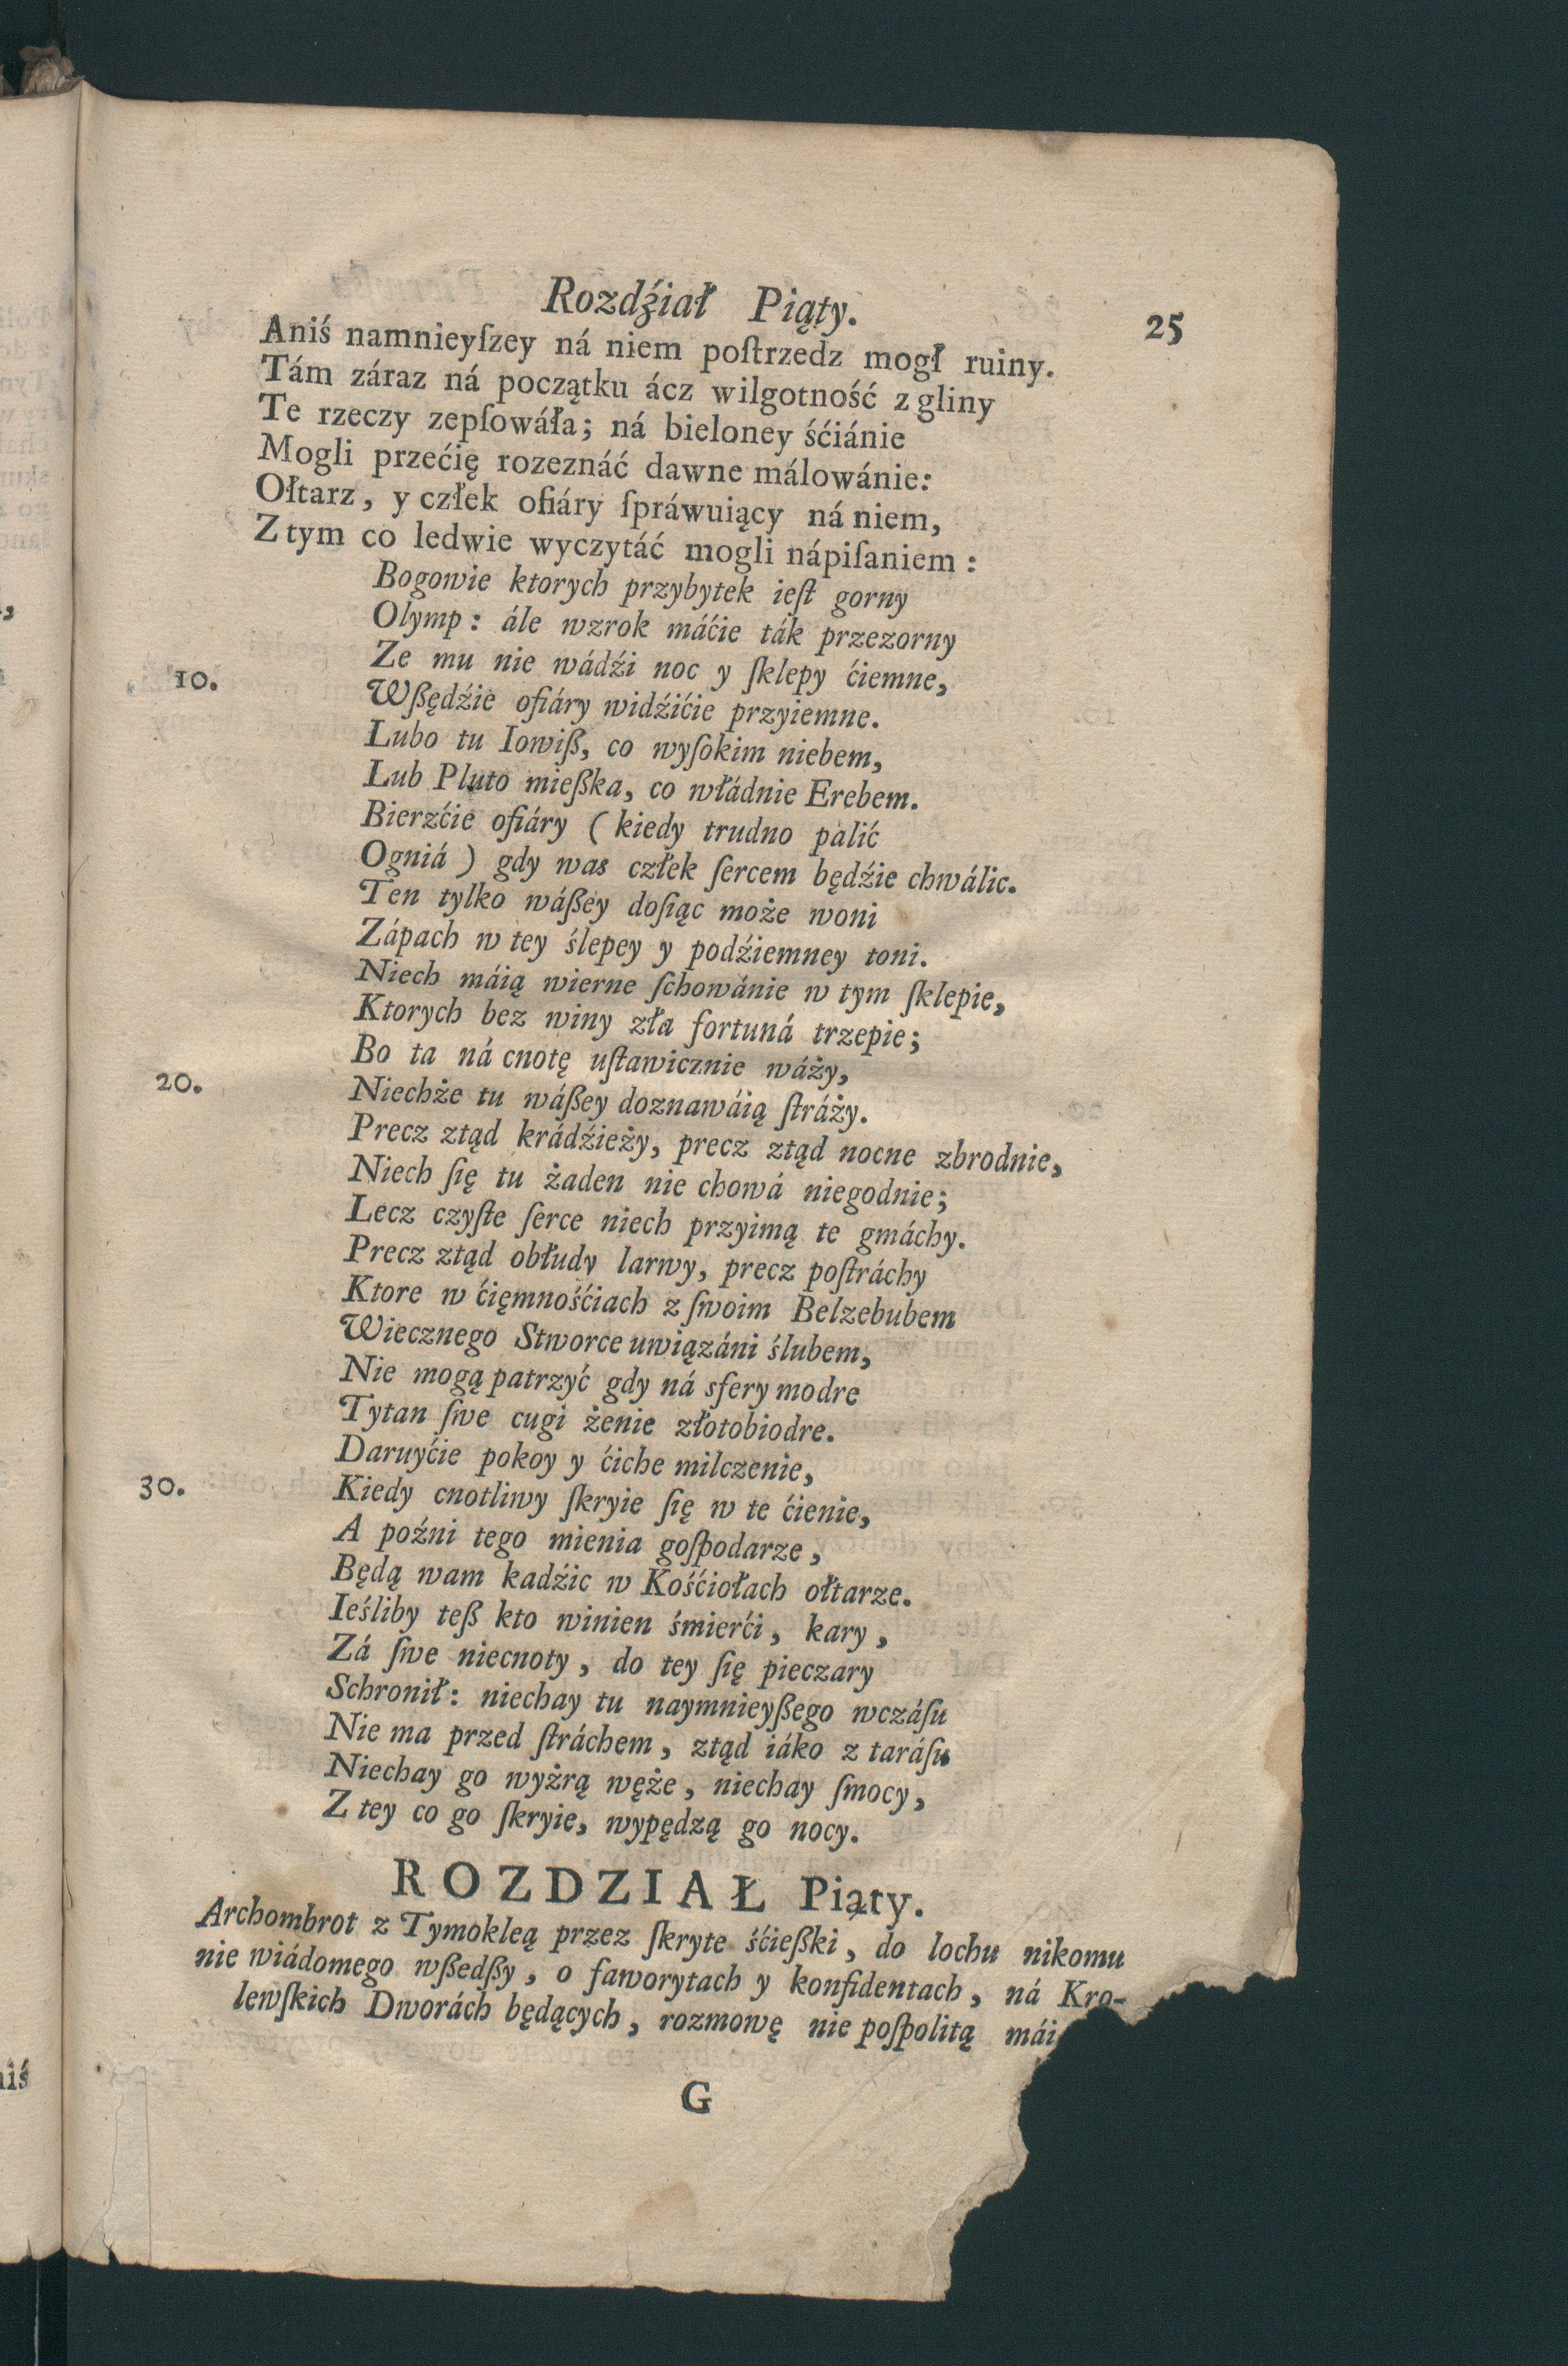 Rozdźiał Piąty. 25
Aniś namnieyſzey ná niem poſtrzedz mogł ruiny.
Tám záraz ná początku ácz wilgotność z gliny
Te rzeczy zepſowáła; ná bieloney śćiánie
Mogli przećię rozeznáć dawne málowánie:
Ołtarz, y człek ofiáry ſpráwuiący ná niem,
Z tym co ledwie wyczytáć mogli nápiſaniem:
Bogowie ktorych przybytek ieſt gorny
Olymp: ále wzrok máćie ták przezorny
Ze mu nie wádźi noc y ſklepy ćiemne,
10. Wßędźie ofiáry widźićie przyiemne.
Lubo tu Iowiß, co wyſokim niebem,
Lub Pluto mießka, co włádnie Erebem.
Bierzćie ofiáry (kiedy trudno palić
Ogniá) gdy was człek ſercem będźie chwálic.
Ten tylko wáßey doſiąc może woni
Zápach w tey ślepey y podźiemney toni.
Niech máią wierne ſchowánie w tym ſklepie,
Ktorych bez winy zła fortuná trzepie;
Bo ta ná cnotę uſtawicznie wáży,
20. Niechże tu wáßey doznawáią ſtráży.
Precz ztąd krádźieży, precz ztąd nocne zbrodnie,
Niech ſię tu żaden nie chowá niegodnie;
Lecz czyſte ſerce niech przyimą te gmáchy.
Precz ztąd obłudy larwy, precz poſtráchy
Ktore w ćięmnośćiach z ſwoim Belzebubem
Wiecznego Stworce uwiązáni ślubem,
Nie mogą patrzyć gdy ná sfery modre
Tytan ſwe cugi żenie złotobiodre.
Daruyćie pokoy y ćiche milczenie,
30. Kiedy cnotliwy ſkryie ſię w te ćienie,
A poźni tego mienia goſpodarze,
Będą wam kadźic w Kośćiołach ołtarze.
Ieśliby teß kto winien śmierći, kary,
Zá ſwe niecnoty, do tey ſię pieczary
Schronił: niechay tu naymnieyßego wczáſu
Nie ma przed ſtráchem, ztąd iáko z taráſu
Niechay go wyżrą węże, niechay ſmocy,
Z tey co go ſkryie, wypędzą go nocy.
ROZDZIAŁ Piąty.
Archombrot z Tymokleą przez ſkryte śćießki, do lochu nikomu
nie wiádomego wßedßy, o faworytach y konfidentach, ná Kro-
lewſkich Dworách będących, rozmowę nie poſpolitą mái
G